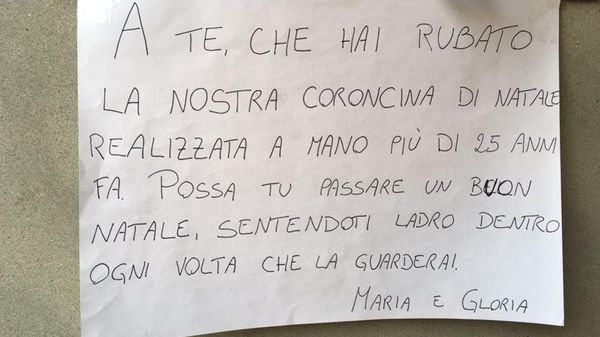 A TE, CHE HAI RUBATO
LA NOSTRA CORONCINA DI NATALE
REALIZZATA A MANO PIÙ DI 25 ANNI
FA. POSSA TU PASSARE UN BUON
NATALE, SENTENDOTI LADRO DENTRO
OGNI VOLTA CHE LA GUARDERAI.
MARIA E GLORIA